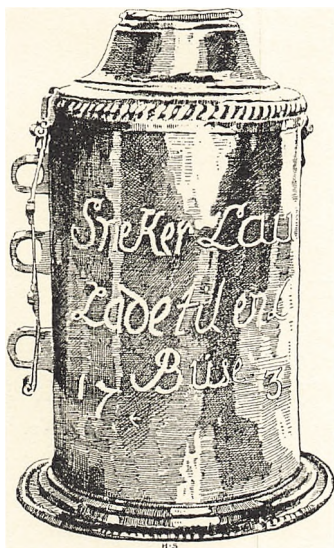 SneKer Lau
Lade til en
Büse
17 3
H-S